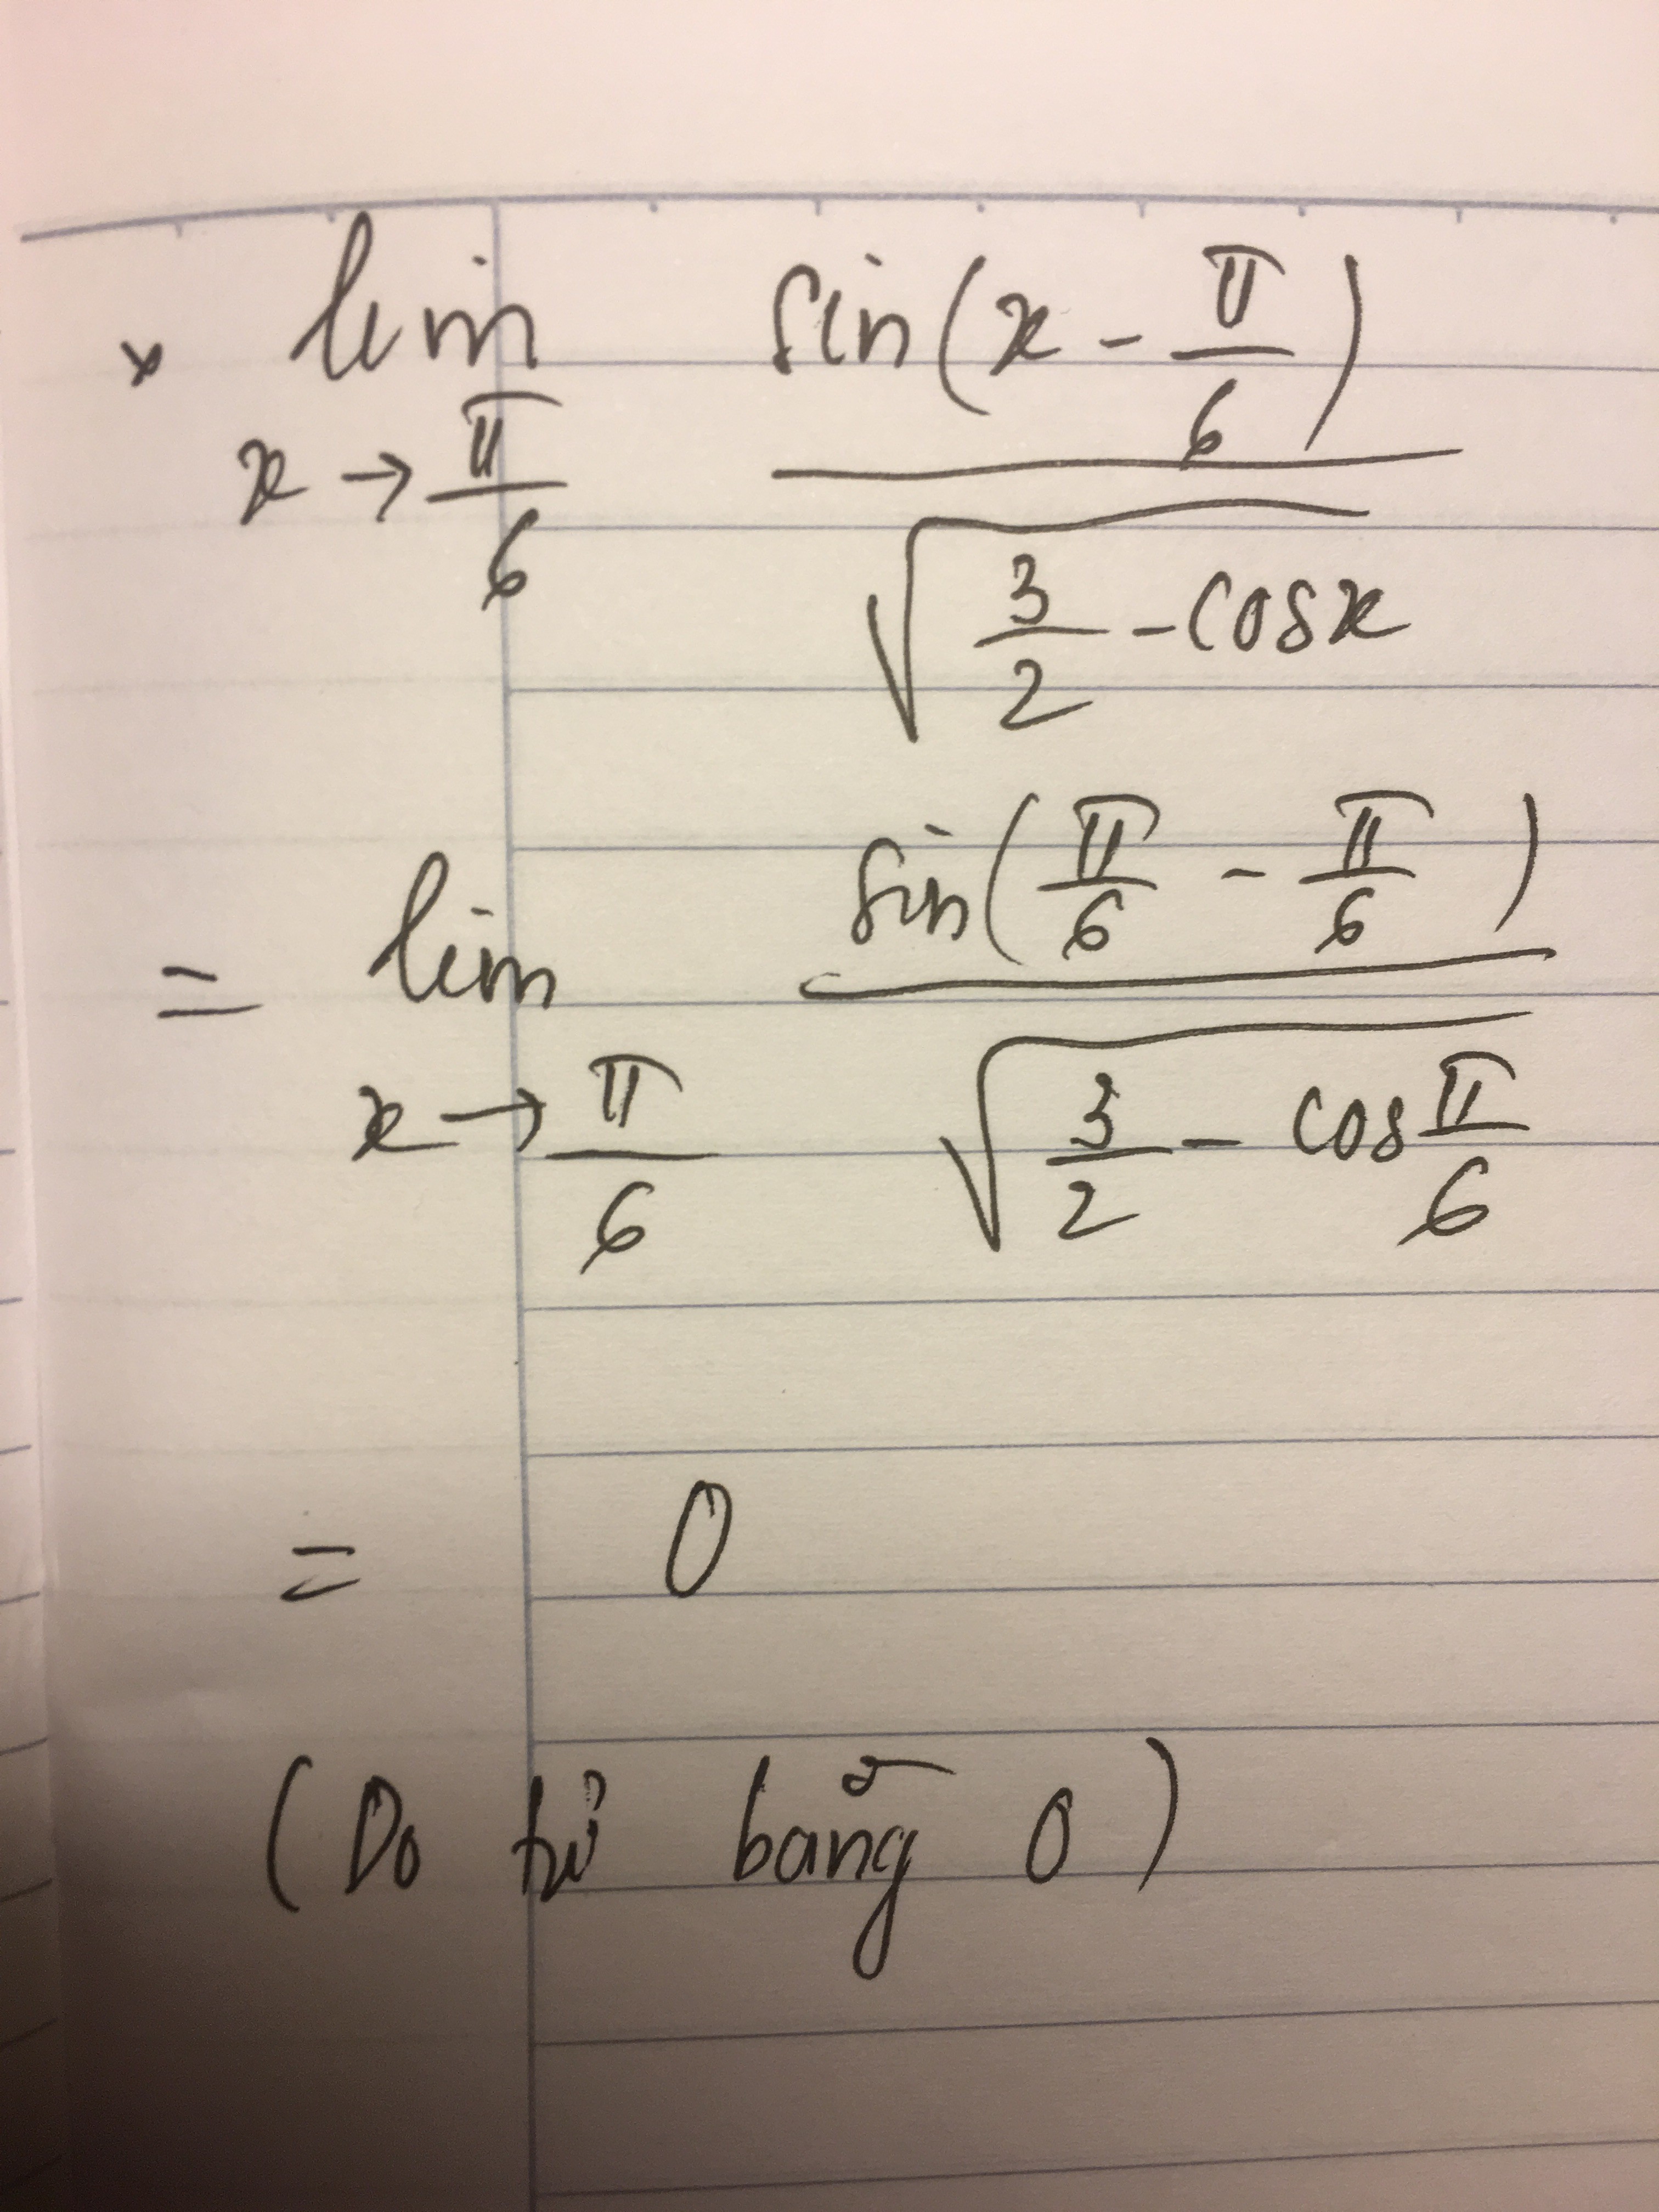 * lim x→π/6 sin(x - π/6) / √(3/2 - cosx)
= lim x→π/6 sin(π/6 - π/6) / √(3/2 - cos π/6)
= 0
(Do tử bằng 0)